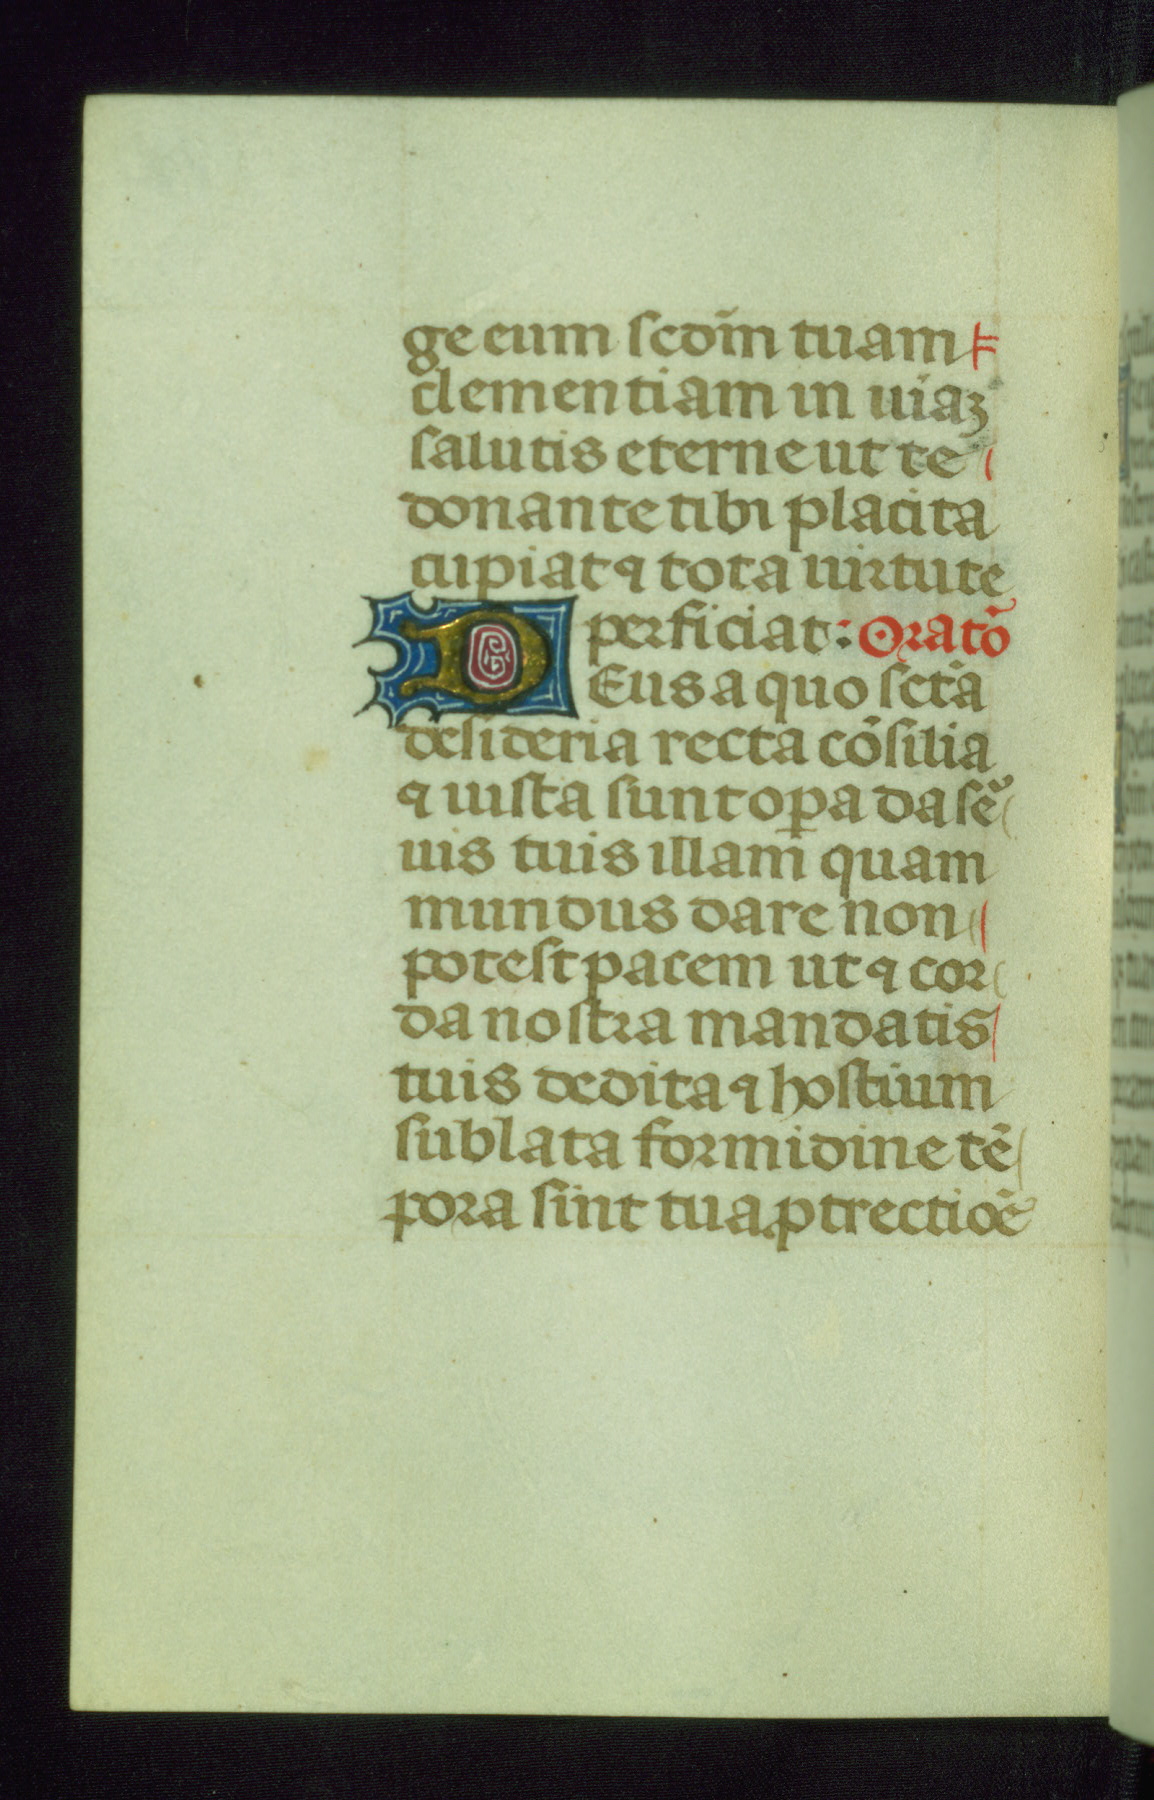 ge eum scdm̄ tuam
clementiam in uiaꝫ
salutis eterne ut te
donante tibi placita
cupiat ⁊ tota uirtute
perficiat: Orat̄o
DEus a quo sct̄a
desideria recta cōsilia
⁊ iusta sunt oꝑa da sẽ
uis tuis illam̄ quam
mundus dare non
potest pacem ut ⁊ cor
da nostra mandatis
tuis dedita ⁊ hostium
sublata formidine tē
pora sint tua ptrectioē